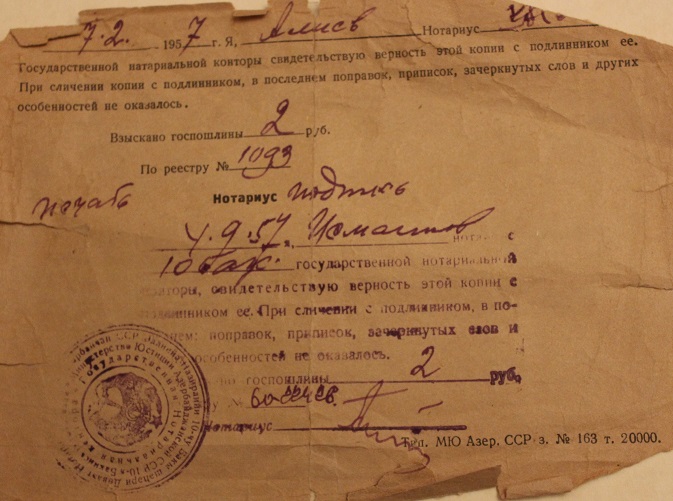 7.2. 1957 г. Я, Алиев Нотариус
Государственной натариальной конторы свидетельствую верность этой копии с подлинником ее.
При сличении копии с подлинником, в последнем поправок, приписок, зачеркнутых слов и других
особенностей не оказалось.
Взыскано госпошлины 2 руб.
По реестру № 1093
Нотариус подпись
печать
4.9.57 г., Исмаилов
10 Бак. государственной нотариальной
свидетельствую верность этой копии с
подлинником ее. При сличении с подлинником, в по-
поправок, приписок, зачеркнутых слов и
особенностей не оказалось.
госпошлины 2 руб.
№
Нотариус
Тип. МЮ Азер. ССР з. № 163 т. 20000.